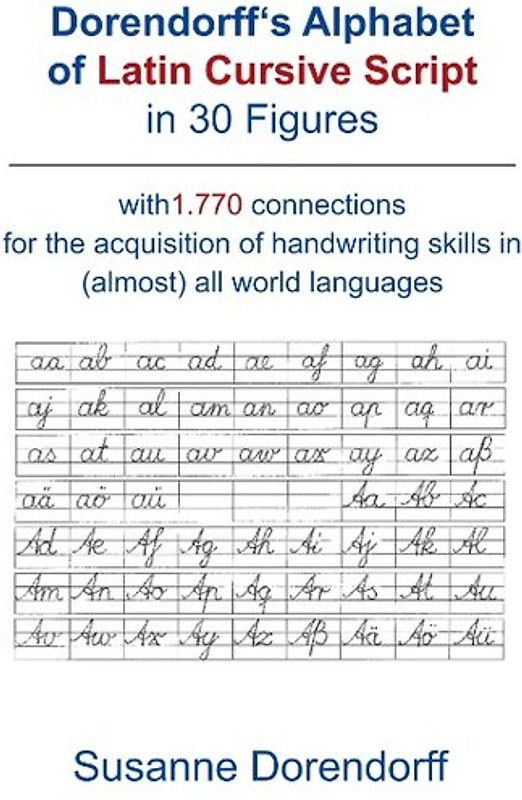 Dorendorff‘s Alphabet
of Latin Cursive Script
in 30 Figures
with1.770 connections
for the acquisition of handwriting skills in
(almost) all world languages
aa ab ac ad ae af ag ah ai
aj ak al am an ao ap aq ar
as at au av aw ax ay az aß
aä aö aü Aa Ab Ac
Ad Ae Af Ag Ah Ai Aj Ak Al
Am An Ao Ap Aq Ar As At Au
Av Aw Ax Ay Az Aß Aä Aö Aü
Susanne Dorendorff